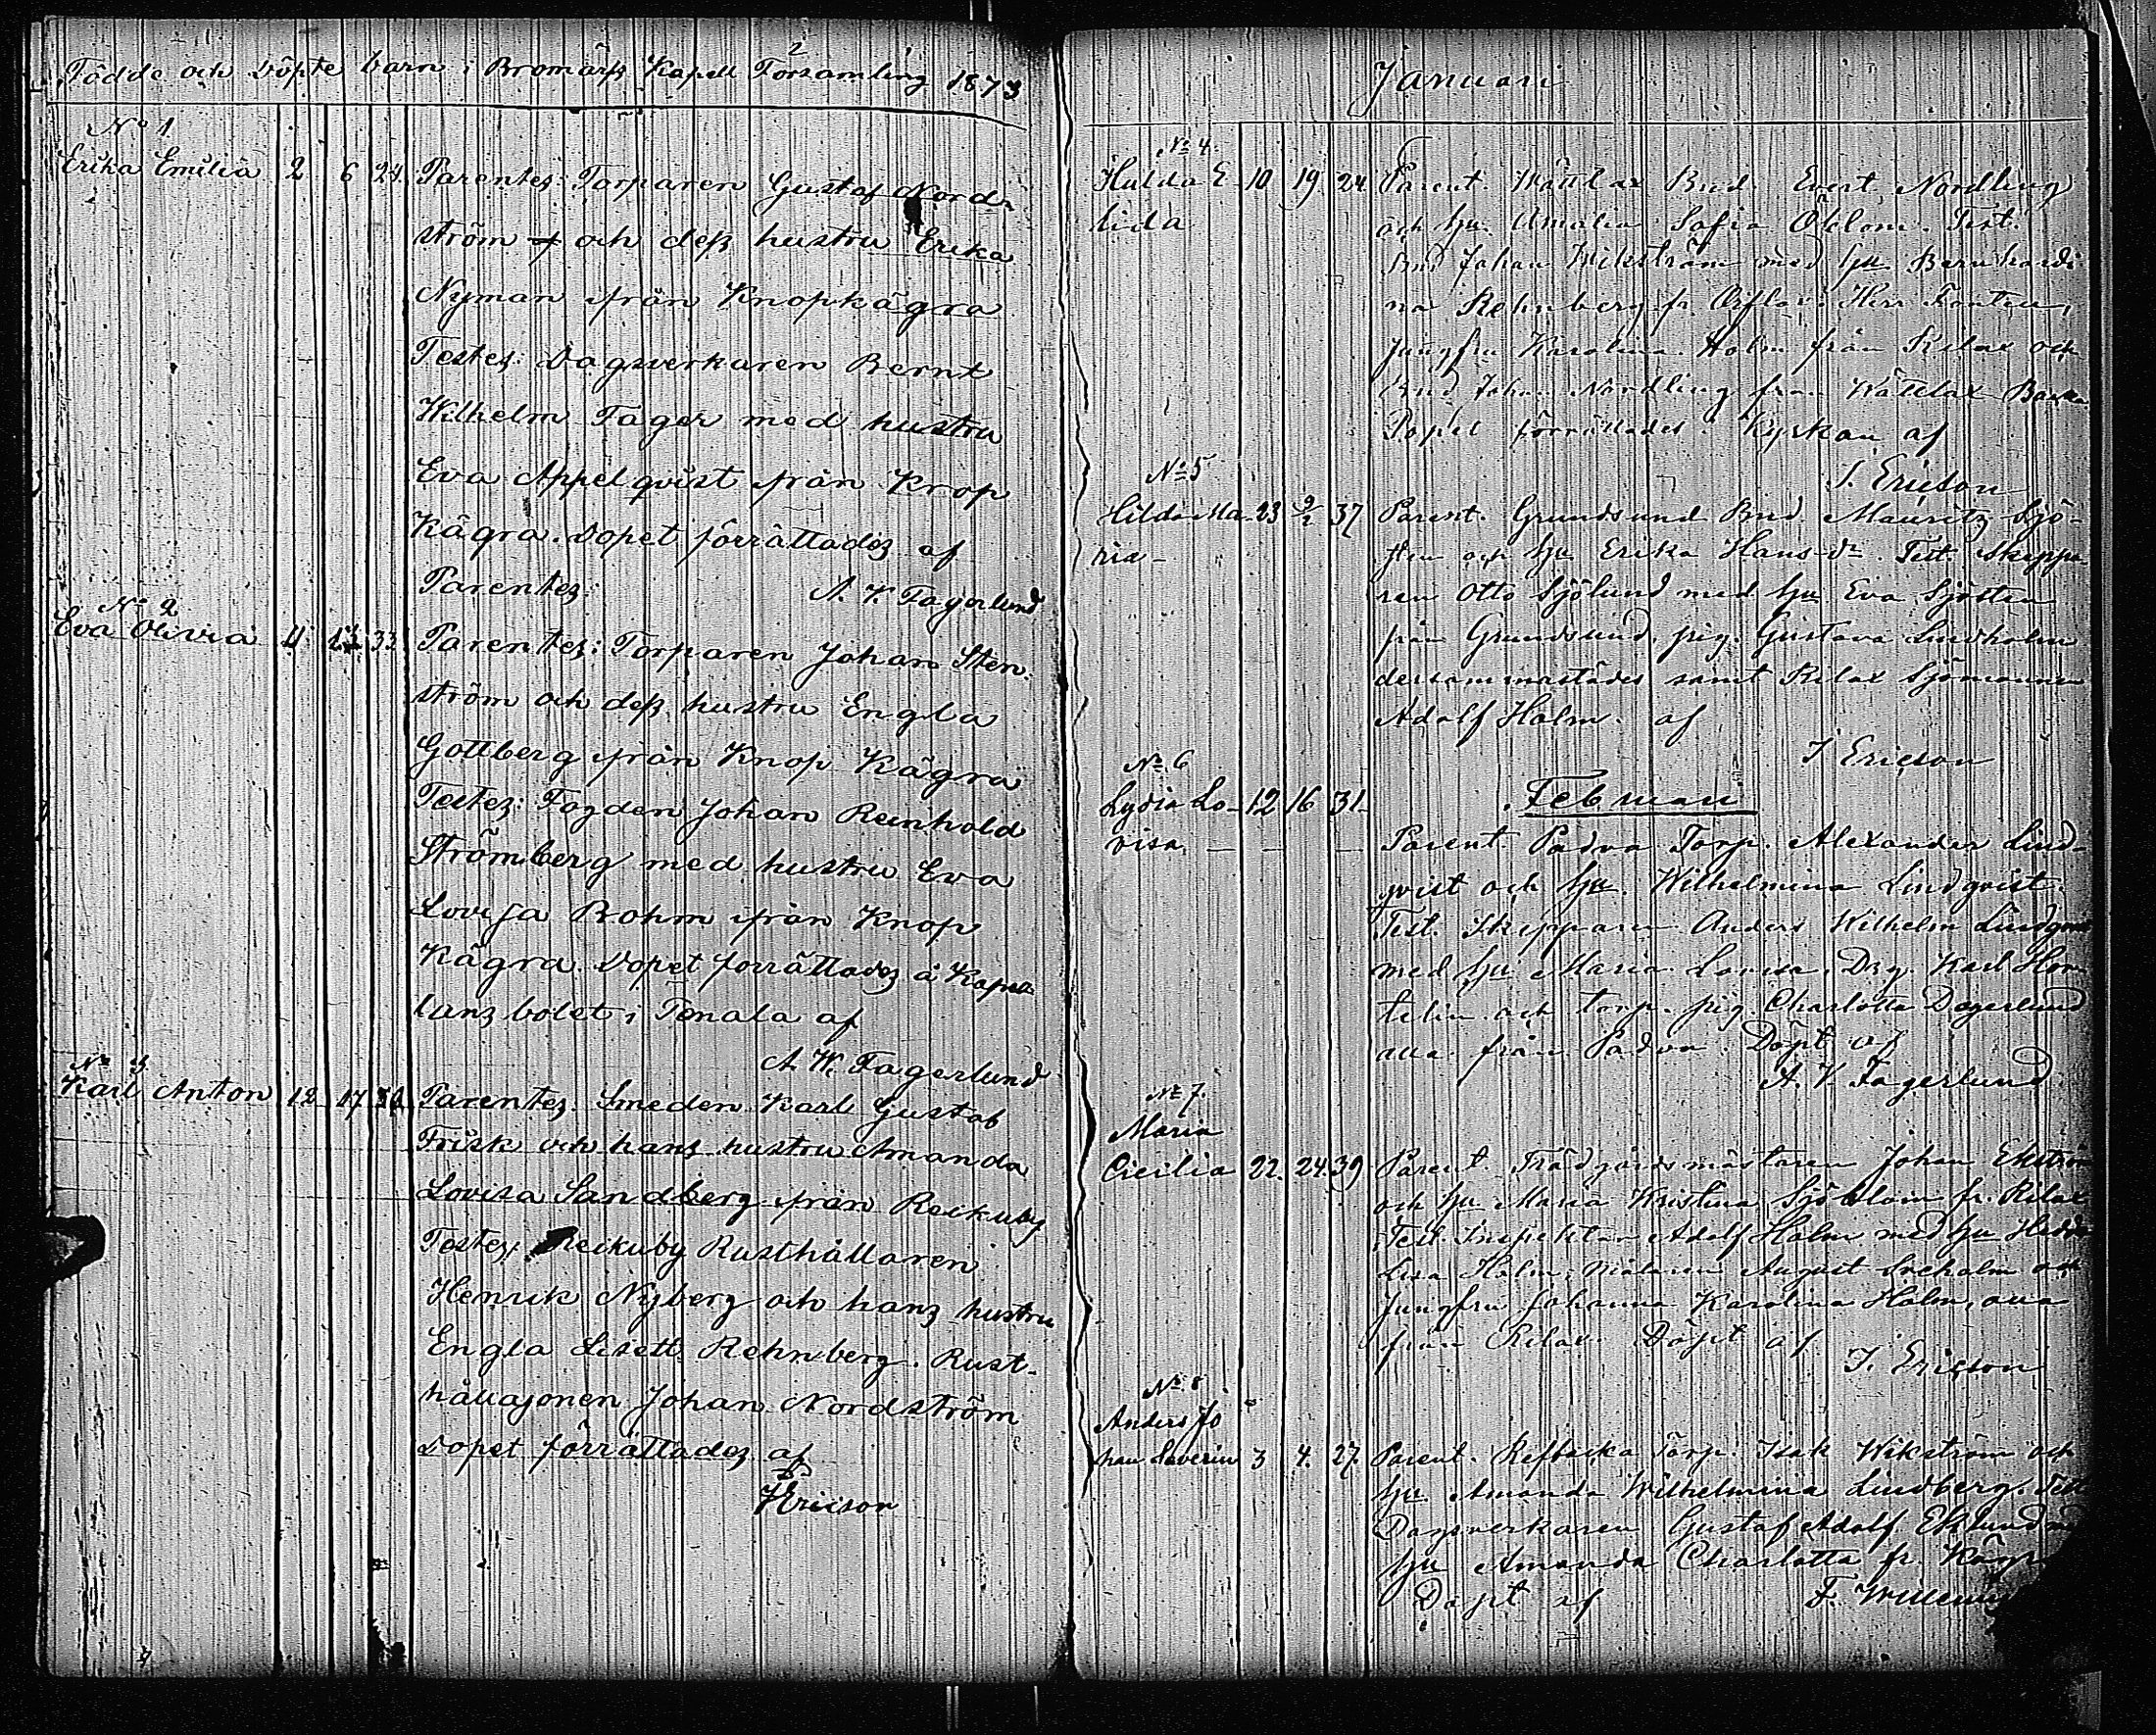 2
Födde och döpte barn i Bromarfs Kapell Församling 1873
No 1
Erika Emilia 2 6 24 Parentes: Torparen Gustaf Nord-
ström och dess hustru Erika
Nyman från Knopkägra
Testes: Dagsverkaren Bernt
Wilhelm Fager med hustru
Eva Appelqvist från Knop
Kägra. Dopet förrättades af
Parentes: A. V. Fagerlund
No 2
Eva Olivia 4 33 Parentes: Torparen Johan Sten-
ström och dess hustru Engla
Gottberg från Knop Kägra
Testes: Fogden Johan Reinhold
Strömberg med hustru Eva
Lovisa Bohm från Knop
Kägra. Dopet förrättades å Kapel
lans bolet i Tenala af
A. W. Fagerlund
No 3
Karl Anton 12 17 Parentes: Smeden Karl Gustaf
Frisk och hans hustru Amanda
Lovisa Sandberg från Reikuby
Testes: Reikuby Rusthållaren
Henrik Nyberg och hans hustru
Engla Lisett Rehnberg. Rust-
hållasonen Johan Nordström
Dopet förrättades af
J Ericson
Januari
No 4.
Hulda E 10 19 24 Parent Wättlax Bnd. Evert Nordling
lida och hu Amalia Sofia Öblom. Test.
Bnd Johan Wikström med hu Bernhardi
na Rehnberg fr.
jungfru Karolina Holm från Rilax och
Bnd Johan Nordling från Wättlax Backa
Dopet förrättades i Kyrkan af
J. Ericson
No 5
Hilda Ma 23 9/2 37 Parent. Grundsund Bnd Mauritz Sjö-
ria - sten och hu Erika Hans dr. Test. Skeppa
ren Otto Sjölund med hu Eva Sjösten
från Grundsund, pig. Gustava Lindholm
dersammastädes samt Rilax Sjömannen
Adolf Holm. af
J Ericson
No 6
Februari
Lydia Lo- 12 16 31
visa Parent. Padva Torp. Alexander Lind-
qvist och hu. Wilhelmina Lindqvist.
Test. Skepparen Anders Wilhelm Lindqvist
med hu Maria Lovisa, Drg. Karl Hor
telin och torp. pig Charlotta Dagerlund
alla från Padva. Döpt af
A. V. Fagerlund
No 7.
Maria
Cicilia 22. 24. 39 Parent. Trädgårdsmästaren Johan Ekström
och hu Maria Kristina Sjöblom fr. Rilax
Test. Inspektor Adolf Holm med hu Hedda
Lisa Holm, Målaren August Sveholm och
Jungfru Johanna Karolina Holm, alla
från Rilax. Döpt af
J. Ericson
No 8
Anders Jo
han Severin 3 4. 27. Parent. Refbacka Torp. Isak Wikström och
hu. Amanda Wilhelmina Lindberg. Test
Dagsverkaren Gustaf Adolf Eklund
hu Amanda Charlotta fr.
Döpt af F.